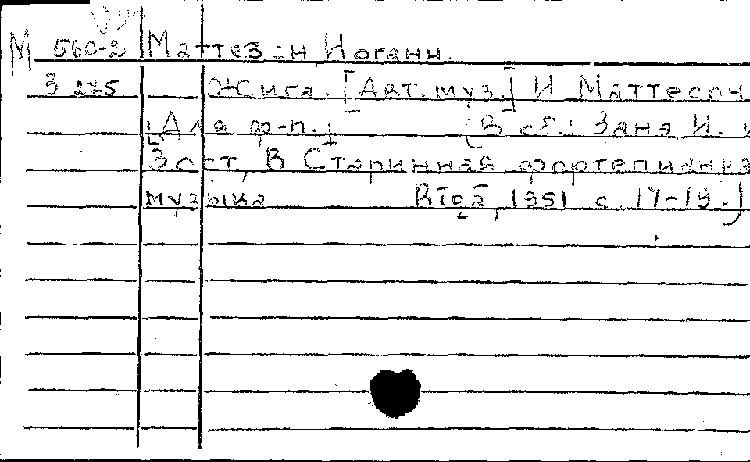 М 560-2 Маттезон Иоганн.
3 275 Жига. [Авт. муз.] И Маттесон
[Для ф-п.] (В сб.: Заня И. и
Зост, В Старинная фортепианная
музыка Рига, 1951 с. 17-19.)